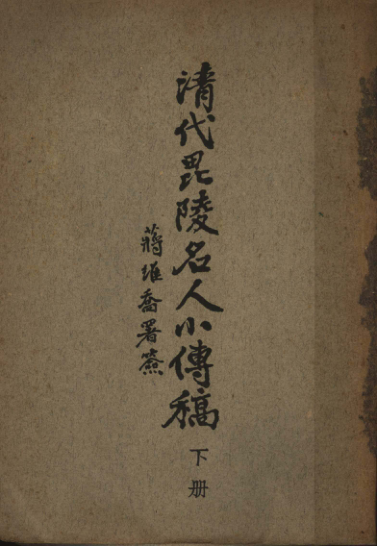 清代毘陵名人小傳稿
下册
蔣維喬署簽